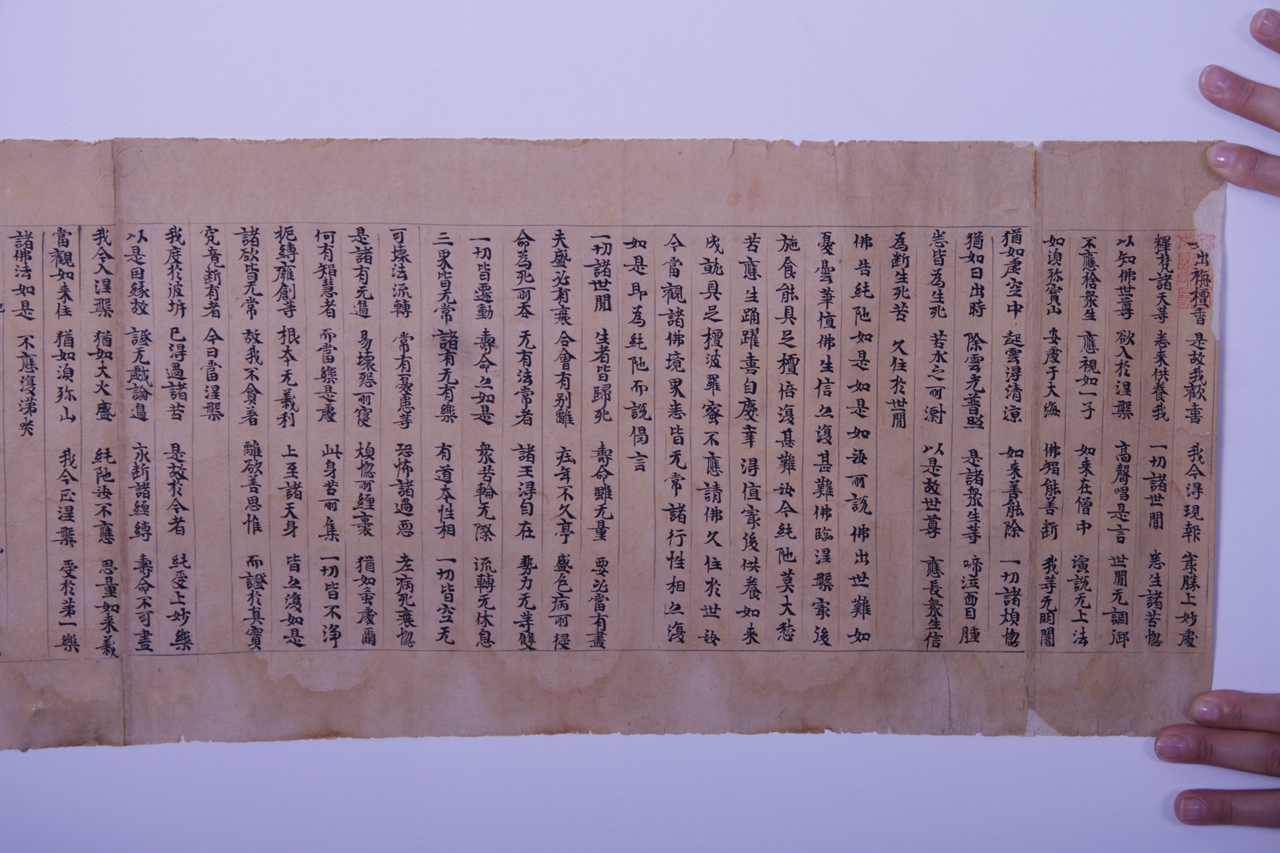 出栴檀香 是故我歡喜 我今淂現報 寂勝上妙處
釋梵諸天等 悉来供養我 一切諸世間 悉生諸苦惱
以知佛世尊 欲入於涅槃 髙聲唱是言 世間无調御
不應捨衆生 應視如一子 如来在僧中 演說无上法
如湏弥寳山 安處于大海 佛智能善斷 我等无明闇
猶如虚空中 起雲淂清涼 如来善能除 一切諸煩惱
猶如日出時 除雲光普照 是諸衆生等 啼泣面目腫
悉皆為生死 苦水之所漂 以是故世尊 應長衆生信
為断生死苦 久住於世間
佛告純陁如是如是如汝所說佛出世難如
憂曇華值佛生信亦復甚難佛臨涅槃寂後
施食能具足檀倍復甚難汝今純陁莫大愁
苦應生踊躍喜自慶幸淂值寂後供養如来
成就具足檀波羅蜜不應請佛久住於世汝
今當觀諸佛境界悉皆无常諸行性相亦復
如是即為純陁而說偈言
一切諸世間 生者皆歸死 壽命雖无量 要必當有盡
夫盛必有衰 合會有別離 壯年不久亭 盛色病所侵
命為死所吞 无有法常者 諸王淂自在 勢力无等雙
一切皆遷動 壽命亦如是 衆苦輪无際 流轉无休息
三界皆无常 諸有无有樂 有道本性相 一切皆空无
可壊法流轉 常有憂患等 恐怖諸過惡 老病死衰惱
是諸有无邊 易壊怨所侵 煩惱所纒裹 猶如蚕處繭
何有智慧者 而當樂是處 此身苦所集 一切皆不淨
扼縛癰創等 根本无義利 上至諸天身 皆亦復如是
諸欲皆无常 故我不貪著 離欲善思惟 而證於真實
究竟断有者 今日當涅槃
我度於彼岸 已淂過諸苦 是故於今者 純受上妙樂
以是因緣故 證无戲論邊 永斷諸纒縛 壽命不可盡
我今入涅槃 猶如大火盛 純陁汝不應 思量如来義
當觀如来住 猶如湏弥山 我今正涅槃 受於第一樂
諸佛法如是 不應復涕哭